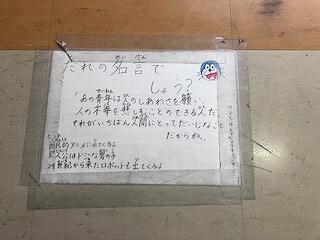 だれの名言で
しょう?
「あの青年は人のしあわさを願い、
人の不幸を悲しむことのできる人だ。
それがいちばん人間にとってだいじなこと
だからね。」
国民的アニメに出てくるよ
主人公はドジな男の子
22世紀から来たロボットも出てくるよ